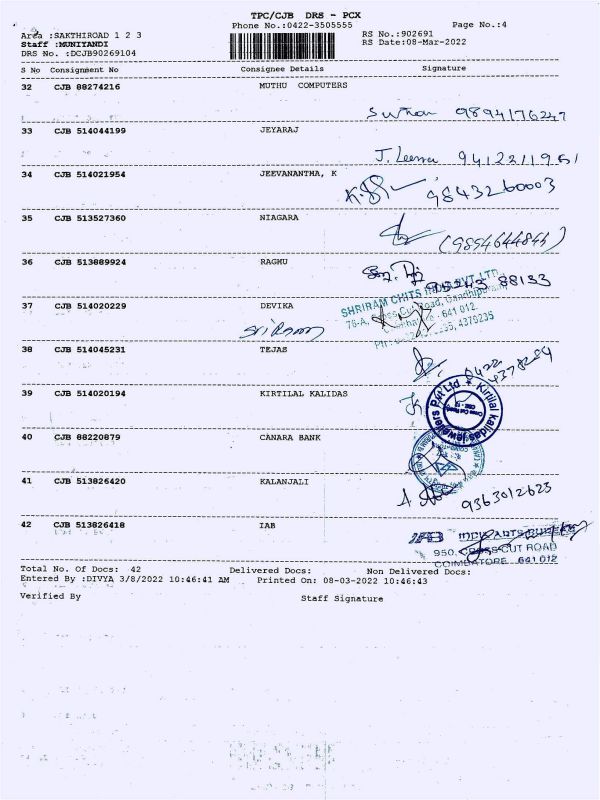 TPC/CJB DRS - PCX
Phone No.:0422-3505555 Page No.:4
Area :SAKTHIROAD 1 2 3 RS No.:902691
Staff :MUNIYANDI RS Date:08-Mar-2022
DRS No. :DCJB90269104
S No Consignment No Consignee Details Signature
32 CJB 88274216 MUTHU COMPUTERS
9894176247
33 CJB 514044199 JEYARAJ
J. Leema
34 CJB 514021954 JEEVANANTHA, K
9843260003
35 CJB 513527360 NIAGARA
36 CJB 513889924 RAGHU
88133
SHRIRAM CHITS PVT. LTD.
37 CJB 514020229 DEVIKA
76-A, Road, Gandhipuram
641 012.
4379235
SRIRAM
38 CJB 514045231 TEJAS
0422
39 CJB 514020194 KIRTILAL KALIDAS
Kirtilal Kalidas Jewellers Pvt Ltd
40 CJB 88220879 CANARA BANK
41 CJB 513826420 KALANJALI
9363012623
42 CJB 513826418 IAB
950, CROSS CUT ROAD
COIMBATORE 641 012
Total No. Of Docs: 42 Delivered Docs: Non Delivered Docs:
Entered By :DIVYA 3/8/2022 10:46:41 AM Printed On: 08-03-2022 10:46:43
Verified By Staff Signature